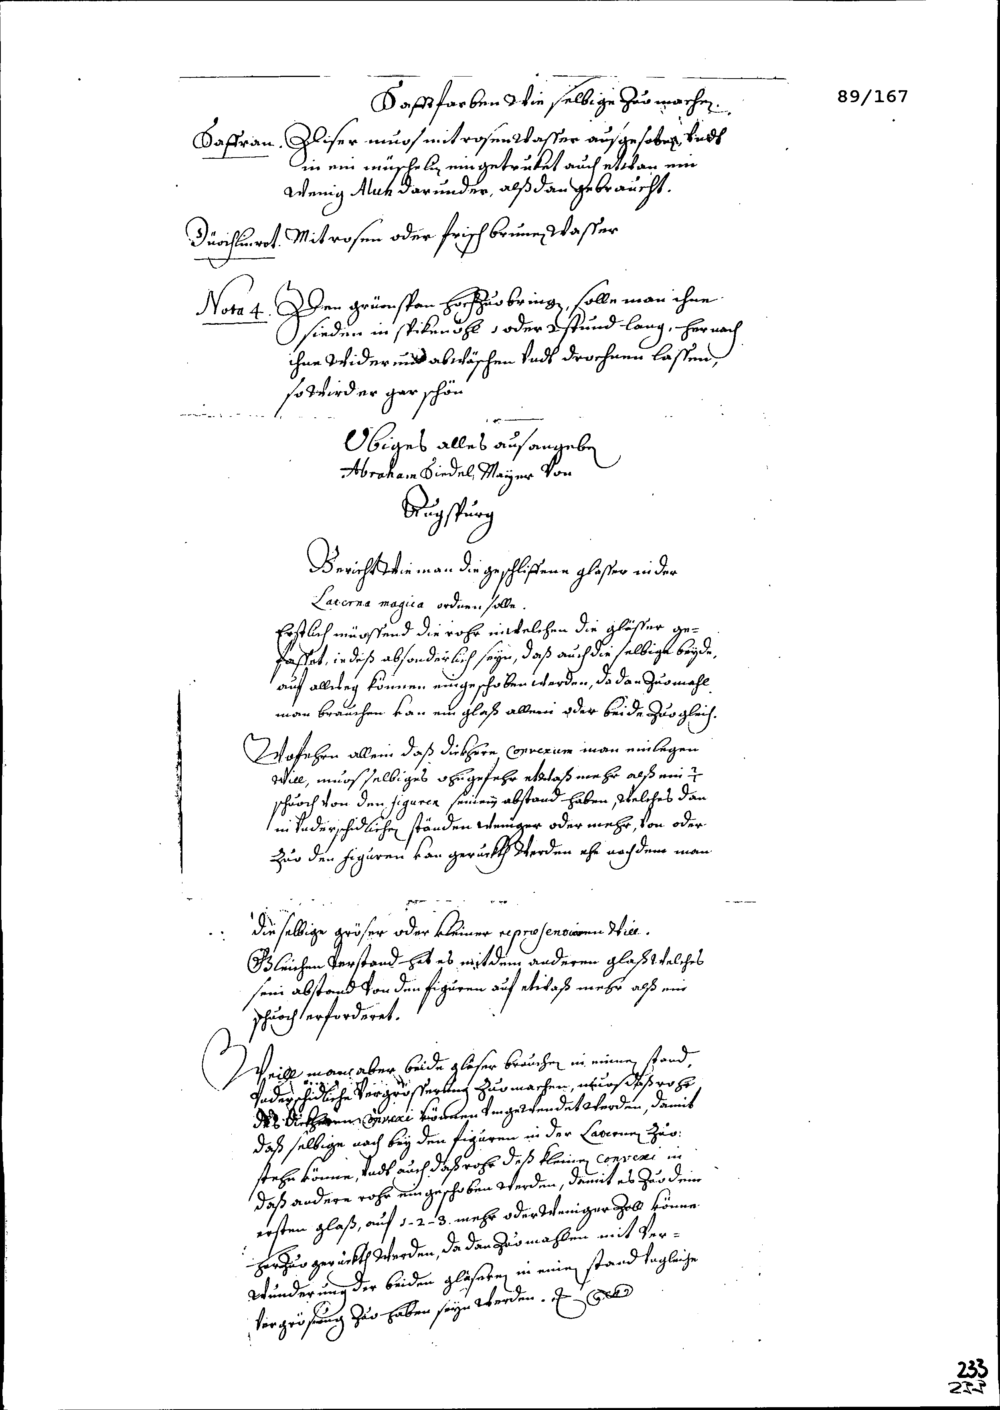 89/167
Safftfarben Wie selbige Zuo machen.
Saffran. Diser muos mit rosen Wasser ausgesoten, Vndt
in ein müschelin eingetruket auch etwan ein
Wenig Alun darunder, alß dan gebraucht.
Mit rosen oder frisch brunen Wasser
Nota 4. Den grüenspan hoch Zuo bringen, solle man ihne
sieden in spikenöhl 1 oder 2 stund lang, hernach
ihne Widerumb abwäschen Vndt drochnen lassen,
so Wird er gar schön
Obiges alles aus angeben
Abraham Riedel, Mayer Von
Augspurg
Bericht Wie man die geschliffene gläser in der
Laterna magica ordnen solle.
Erstlich müossend die rohr in welchen die gläser ge-
fasset, iedeß absonderlich seyn, daß auch die selbige beyde,
auf allweg können eingeschoben werden, da dan Zuomahl
man brauchen kan ein glaß allein oder beide Zuo gleich.
Wofehrn allein daß dickhere Convexum man einlegen
Will, muos selbiges ohngefehr etwaß mehr alß ein
schuoch Von den figuren seinen abstand haben, Welches dan
in Vnderschidlichen ständen Weniger oder mehr, Von oder
Zuo den figuren kan geruckht Werden ie nach dem man
die selbige gröser oder kleiner repraesentieren Will.
Gleichen Verstand hat es mit dem anderen glaß Welches
sein abstand Von den figuren auf etwaß mehr alß ein
schuoch erforderet.
Weill man aber beide gläser brauchen in einem stand,
Vnderschidliche Vergrösserung Zuo machen, muos daß rohr
deß dickheren Convexi können Vmgewendet Werden, damit
daß selbige nach bey den figuren in der Laternen Zuo
stehn könne, Vndt auch daß rohr deß kleinen Convexi in
daß andere rohr eingeschoben Werden, damit es Zuo dem
ersten glaß, auf 1-2-3. mehr oder Weniger Zoll könne
herzuo geruckht Werden, da dan Zuomahlen mit Ver-
wunderung der beiden gläseren in einem stand Vngleiche
Vergrösung Zuo haben seyn Werden.
233
233